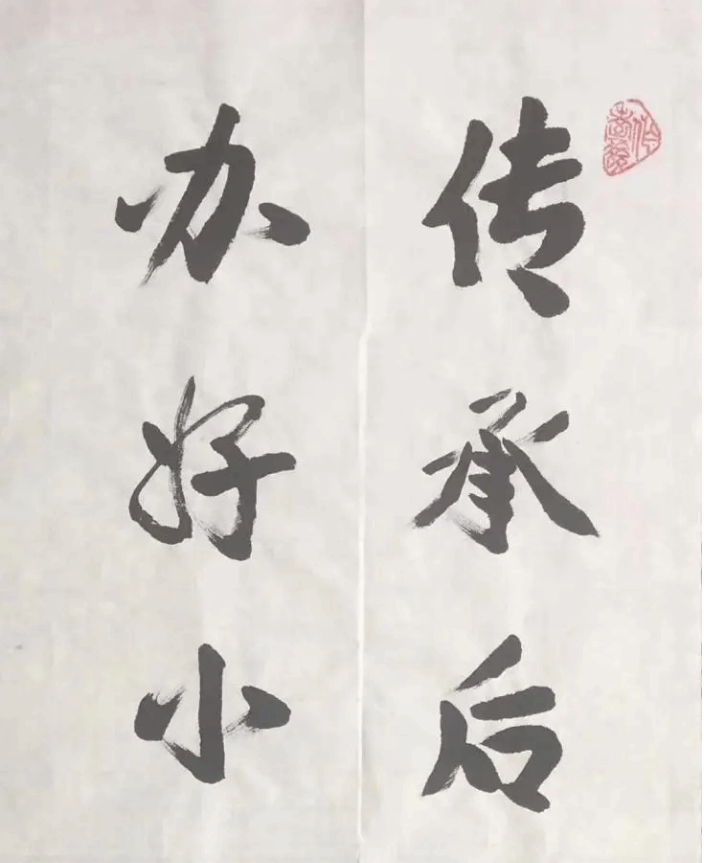 传承后
办好小